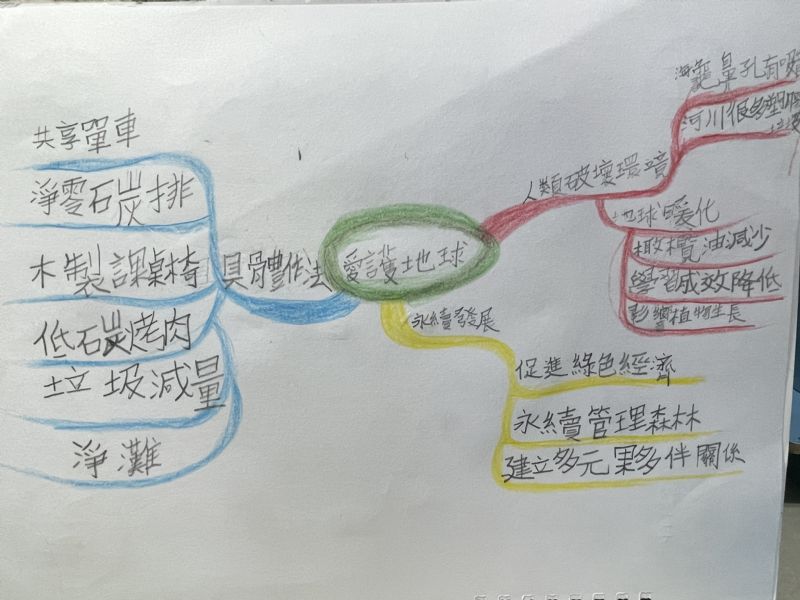 愛護地球
人類破壞環境
海龜鼻孔有吸
河川很多塑膠
垃圾
地球暖化
橄欖油減少
學習成效降低
影響植物生長
永續發展
促進綠色經濟
永續管理森林
建立多元夥伴關係
具體作法
共享單車
淨零石炭排
木製課桌椅
低石炭烤肉
垃圾減量
淨灘